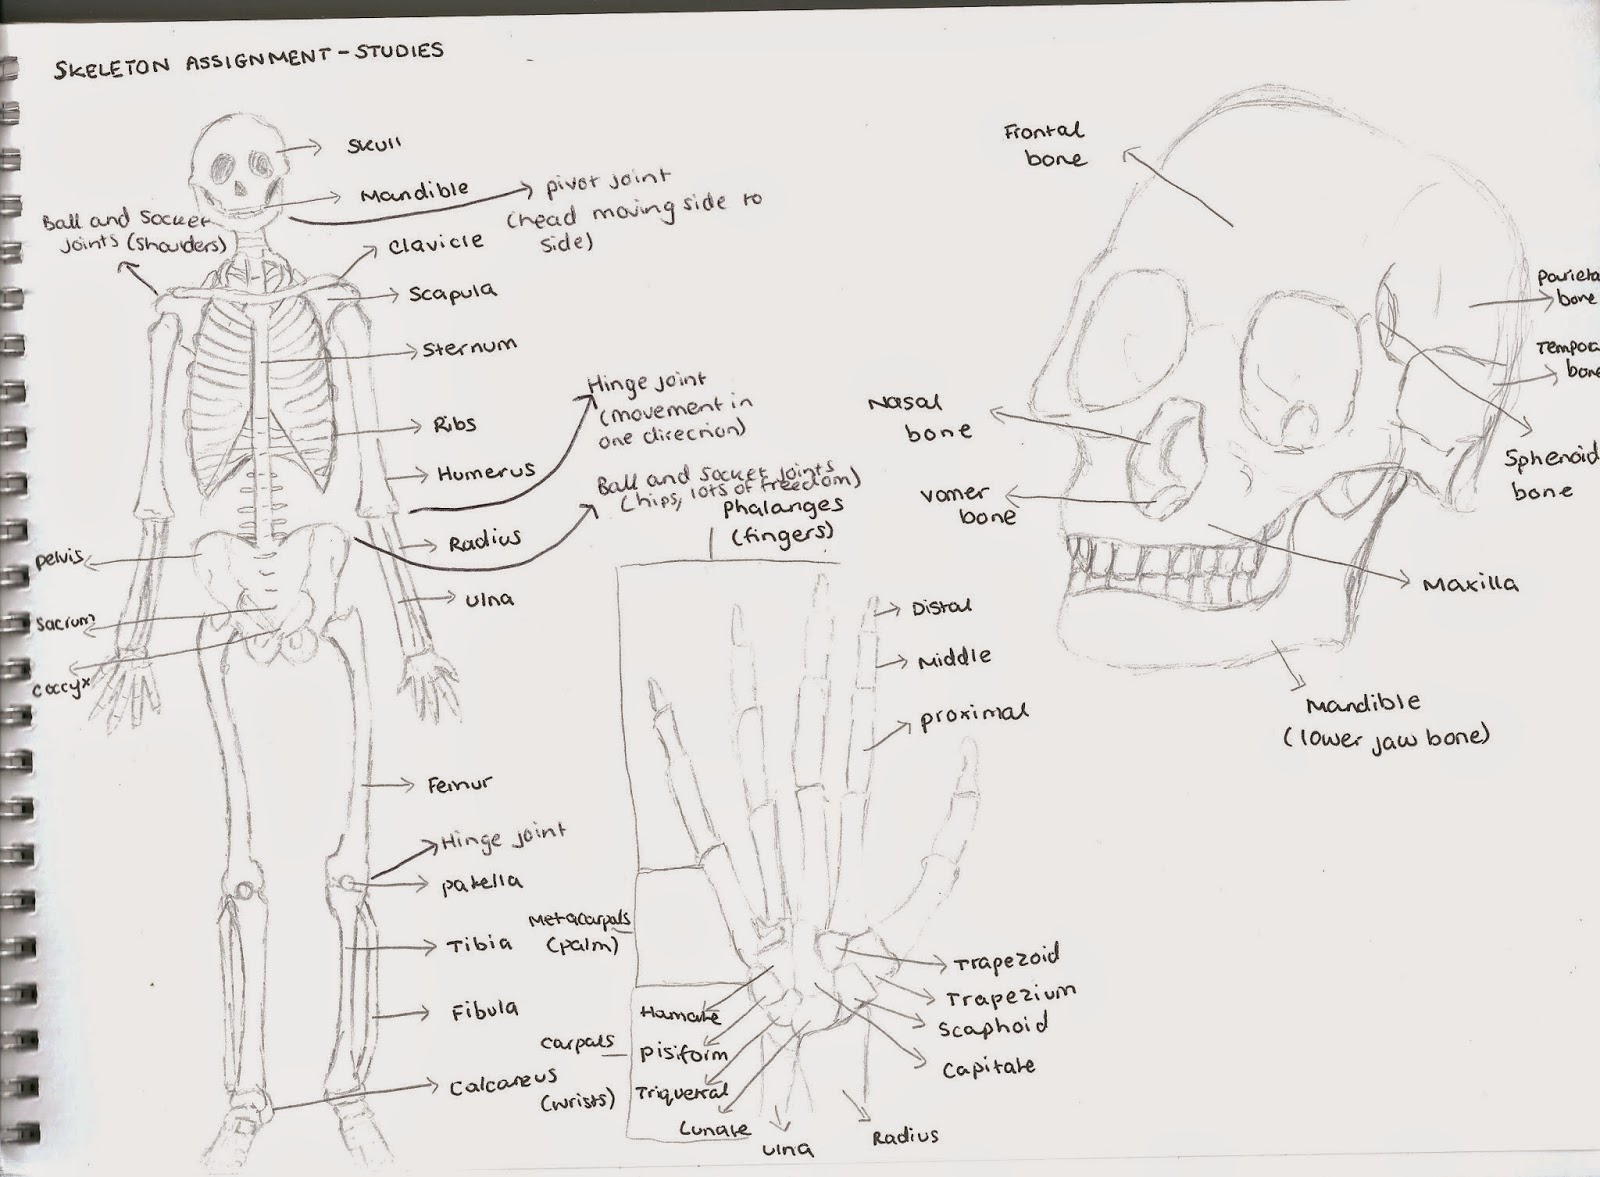 SKELETON ASSIGNMENT - STUDIES
Skull
Mandible
pivot joint
(head moving side to
side)
Ball and Socket
joints (shoulders)
Clavicle
Scapula
Sternum
Ribs
Humerus
Hinge joint
(movement in
one direction)
Ball and Socket joints
(hips, lots of freedom)
Radius
Ulna
pelvis
Sacrum
Coccyx
Femur
Hinge joint
patella
Tibia
Fibula
Calcaneus
phalanges
(fingers)
Distal
Middle
proximal
Metacarpals
(palm)
Carpals
(wrists)
Hamate
pisiform
Triquetral
Lunate
Ulna
Radius
Trapezoid
Trapezium
Scaphoid
Capitate
Frontal
bone
parieta
bone
Tempora
bone
Sphenoid
bone
Nasal
bone
Vomer
bone
Maxilla
Mandible
(lower jaw bone)